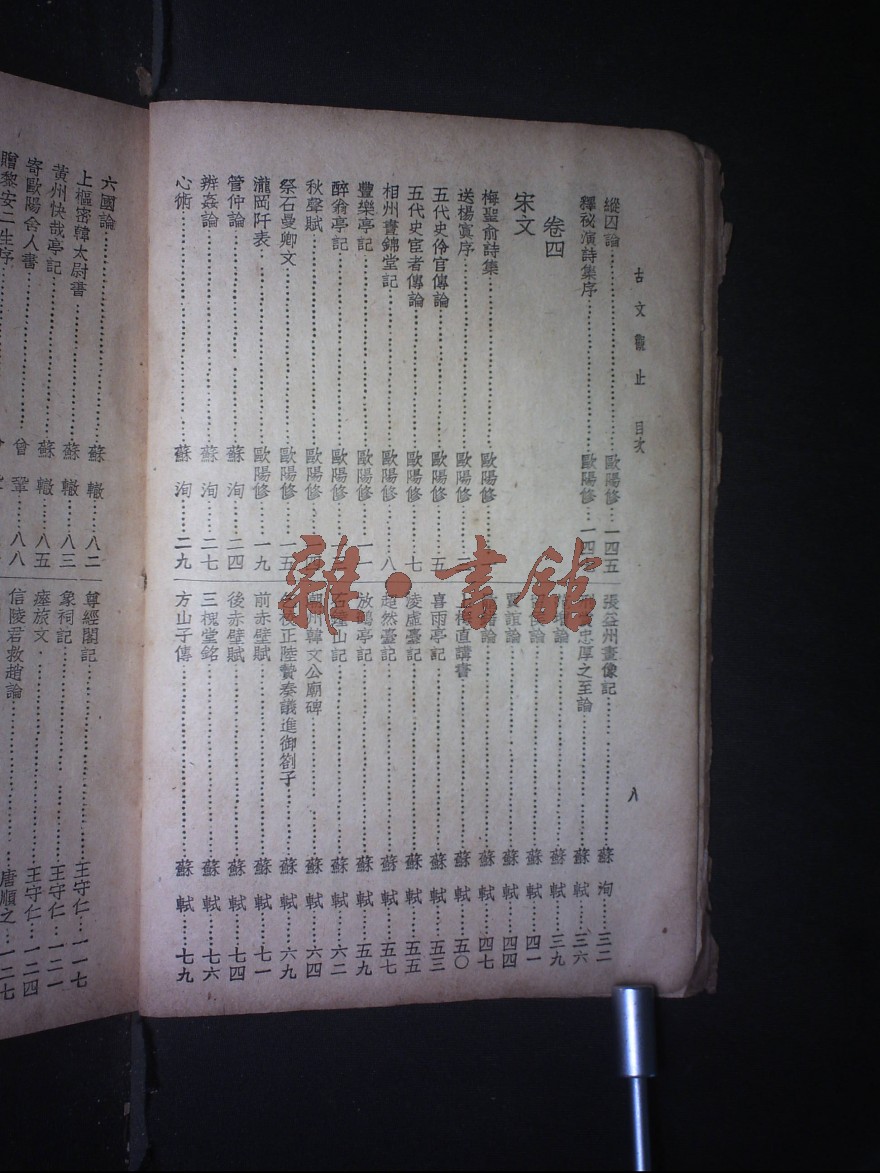 古文觀止 目次
八
縱囚論 歐陽修 一四五
釋祕演詩集序 歐陽修 一四
卷四
宋文
梅聖俞詩集 歐陽修
送楊寘序 歐陽修
五代史伶官傳論 歐陽修 五
五代史宦者傳論 歐陽修 七
相州晝錦堂記 歐陽修 八
豐樂亭記 歐陽修
醉翁亭記 歐陽修
秋聲賦 歐陽修
祭石曼卿文 歐陽修 一五
瀧岡阡表 歐陽修 一九
管仲論 蘇洵 二四
辨姦論 蘇洵 二七
心術 蘇洵 二九
張益州畫像記 蘇洵 三二
忠厚之至論 蘇軾 三六
論 蘇軾 三九
論 蘇軾 四一
賈誼論 蘇軾 四四
論 蘇軾 四七
上梅直講書 蘇軾 五〇
喜雨亭記 蘇軾 五三
凌虛臺記 蘇軾 五五
超然臺記 蘇軾 五七
放鶴亭記 蘇軾 五九
石鐘山記 蘇軾 六二
潮州韓文公廟碑 蘇軾 六四
乞校正陸贄奏議進御劄子 蘇軾 六九
前赤壁賦 蘇軾 七一
後赤壁賦 蘇軾 七四
三槐堂銘 蘇軾 七六
方山子傳 蘇軾 七九
六國論 蘇轍 八二
上樞密韓太尉書 蘇轍 八三
黃州快哉亭記 蘇轍 八五
寄歐陽舍人書 曾鞏 八八
贈黎安二生序
尊經閣記 王守仁 一一七
象祠記 王守仁 一二一
瘞旅文 王守仁 一二四
信陵君救趙論 唐順之 一二七
雜·書館